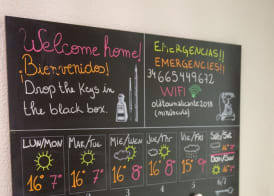 Welcome home!
¡Bienvenidos!
Drop the Keys in
the black box.
EMERGENCIAS!!
EMERGENCIES!!
34 665449672
WIFI
(minúscula)
LUN/MON
MAR/TUE
MIE/WEN
JUE/THU
VIE/FRI
Sab/Sat
Dom/Sun
16° 7°
16° 7°
16° 8°
16° 8°
15° 9°